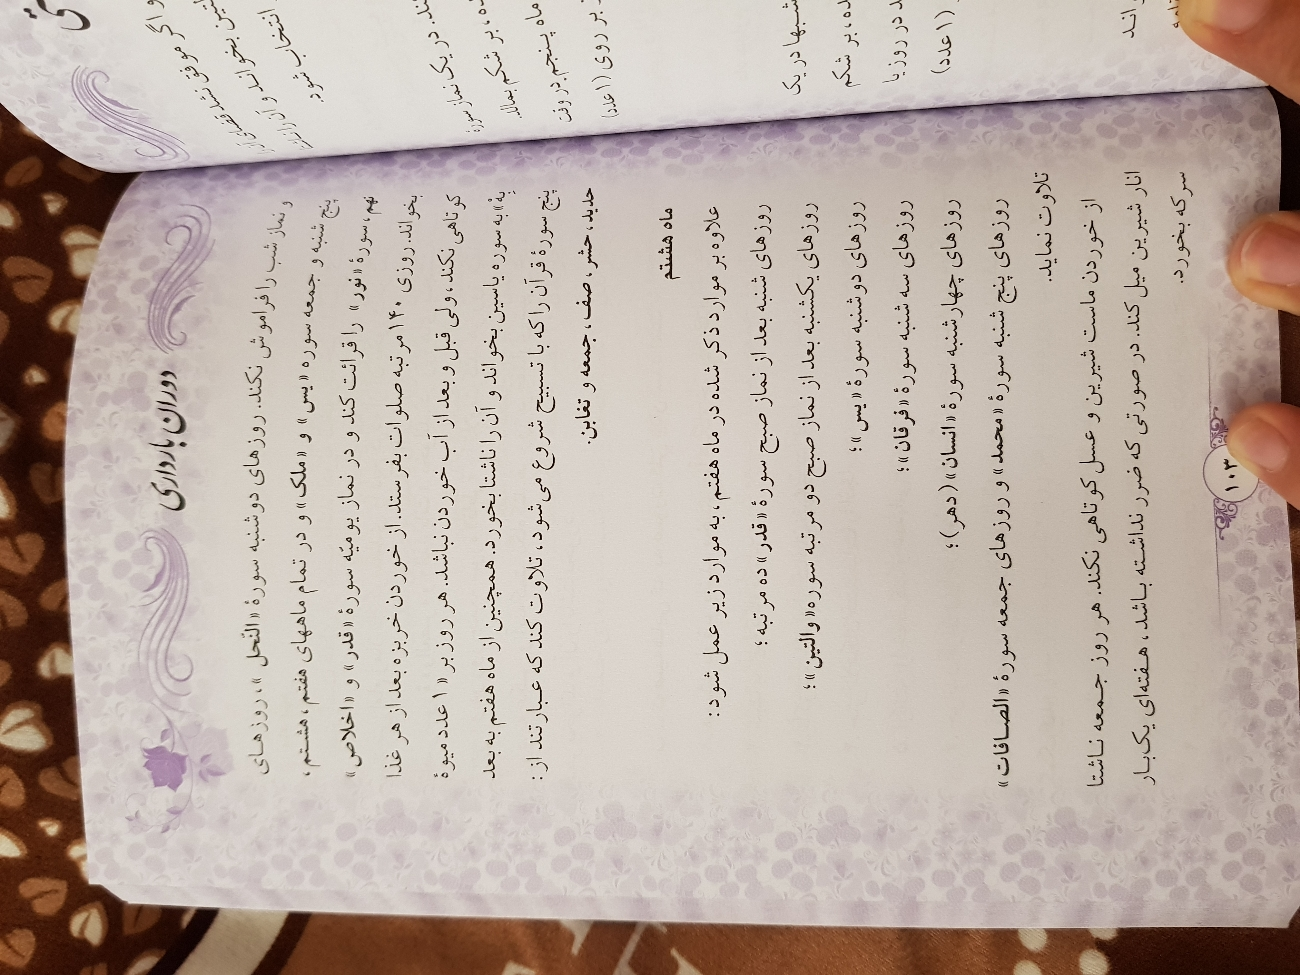 دوران بارداری
و نماز شب را فراموش نکند. روزهای دوشنبه سورهٔ «النحل»، روزهای
پنج شنبه و جمعه سوره «یس» و «ملک» و در تمام ماههای هفتم، هشتم،
نهم، سورهٔ «نور» را قرائت کند و در نماز یومیّه سورهٔ «قدر» و «اخلاص»
بخواند. روزی ۱۴۰ مرتبه صلوات بفرستد. از خوردن خربزه بعد از هر غذا
کوتاهی نکند، ولی قبل و بعد از آب خوردن نباشد. هر روز بر «۱ عدد میوهٔ
بِهْ» به سوره یاسین بخواند و آن را ناشتا بخورد. همچنین از ماه هفتم به بعد
پنج سورهٔ قرآن را که با تسبیح شروع می‌شود، تلاوت کند که عبارتند از:
حدید، حشر، صف، جمعه و تغابن.
ماه هشتم
علاوه بر موارد ذکر شده در ماه هفتم، به موارد زیر عمل شود:
روزهای شنبه بعد از نماز صبح سورهٔ «قدر» ده مرتبه؛
روزهای یکشنبه بعد از نماز صبح دو مرتبه سوره «والتین»؛
روزهای دوشنبه سورهٔ «یس»؛
روزهای سه شنبه سورهٔ «فرقان»؛
روزهای چهارشنبه سورهٔ «انسان» (دهر)؛
روزهای پنج شنبه سورهٔ «محمد» و روزهای جمعه سورهٔ «الصافات»
تلاوت نماید.
از خوردن ماست شیرین و عسل کوتاهی نکند. هر روز جمعه ناشتا
انار شیرین میل کند. در صورتی که ضرر نداشته باشد، هفته‌ای یک‌بار
سرکه بخورد.
۱۰۳
و اگر موفق نشد
بخواند و آن را
انتخاب شود.
در یک نماز سورهٔ
بر شکم بمالد.
ماه پنجم در وقت
بر روی (۱ عدد)
شبها در یک
بر شکم
در روز یا
(۱ عدد)